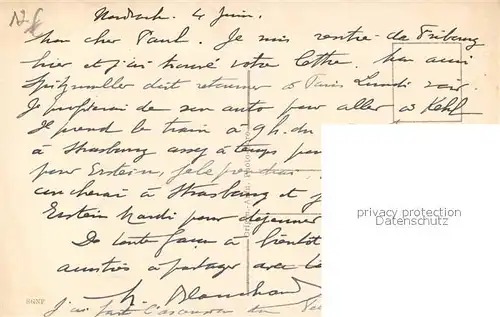 Nordrach. 4 Juin.
Mon cher Paul. Je suis rentré de Fribourg
hier et j'ai trouvé votre lettre. Mon ami
Spitzmuller doit retourner à Paris Lundi soir.
Je profiterai de son auto pour aller à Kehl
Je prend le train à 9h. du
à Strasbourg assez à temps pour
pour Erstein, je le prendrai
coucherai à Strasbourg et j
Erstein Mardi pour déjeuner
De toute façon à bientôt
à partager avec
h. Blanchard
J'ai fait l'ascension du
privacy protection
Datenschutz